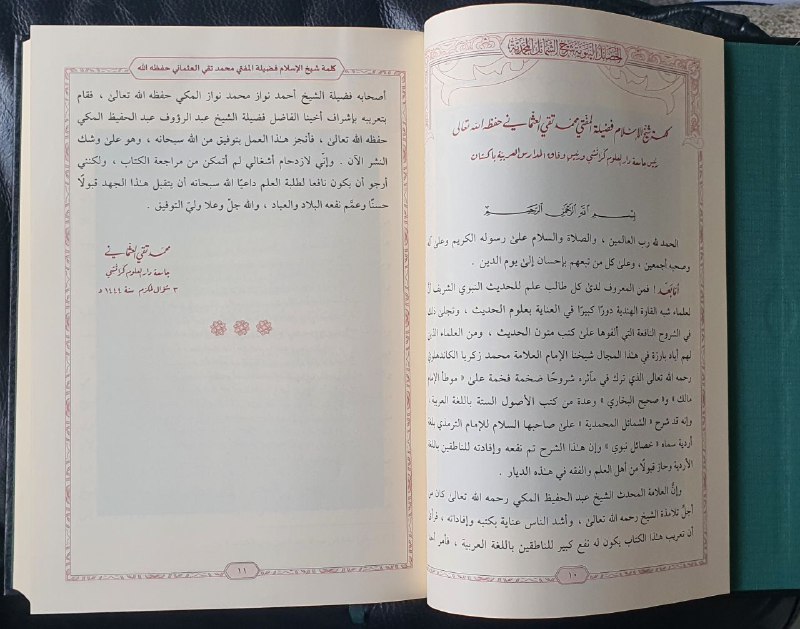 الخصائل النبوية شرح الشمائل المحمدية
كلمة شيخ الإسلام فضيلة المفتي محمد تقي العثماني حفظه الله تعالى
رئيس جامعة دار العلوم كراتشي ورئيس وفاق المدارس العربية باكستان
بسم الله الرحمن الرحيم
الحمد لله رب العالمين ، والصلاة والسلام على رسوله الكريم وعلى آله
وصحبه أجمعين ، وعلى كل من تبعهم بإحسان إلى يوم الدين .
أمّا بعد ! فمن المعروف لدى كل طالب علم للحديث النبوي الشريف أن
لعلماء شبه القارة الهندية دورًا كبيرًا في العناية بعلوم الحديث ، وتجلى ذلك
في الشروح النافعة التي ألفوها على كتب متون الحديث ، ومن العلماء الذين
لهم أياد بارزة في هذا المجال شيخنا الإمام العلامة محمد زكريا الكاندهلوي
رحمه الله تعالى الذي ترك في مآثره شروحًا ضخمة فخمة على « موطأ الإمام
مالك » و« صحيح البخاري » وعدة من كتب الأصول الستة باللغة العربية .
وإنه قد شرح « الشمائل المحمدية » على صاحبها السلام للإمام الترمذي بلغة
أردية سماه « خصائل نبوي » وإن هذا الشرح تم نفعه وإفادته للناطقين باللغة
الأردية وحاز قبولًا من أهل العلم والفقه في هذه الديار .
وإنَّ العلامة المحدث الشيخ عبد الحفيظ المكي رحمه الله تعالى كان من
أجلّ تلامذة الشيخ رحمه الله تعالى ، وأشد الناس عناية بكتبه وإفاداته ، فرأى
أن تعريب هذا الكتاب يكون له نفع كبير للناطقين باللغة العربية ، فأمر أحد
١٠
كلمة شيخ الإسلام فضيلة المفتي محمد تقي العثماني حفظه الله
أصحابه فضيلة الشيخ أحمد نواز محمد نواز المكي حفظه الله تعالى ، فقام
بتعريبه بإشراف أخينا الفاضل فضيلة الشيخ عبد الرؤوف عبد الحفيظ المكي
حفظه الله تعالى ، فأنجز هذا العمل بتوفيق من الله سبحانه ، وهو على وشك
النشر الآن . وإني لازدحام أشغالي لم أتمكن من مراجعة الكتاب ، ولكنني
أرجو أن يكون نافعا لطلبة العلم داعيًا الله سبحانه أن يتقبل هذا الجهد قبولًا
حسنًا وعمَّم نفعه البلاد والعباد ، والله جلّ وعلا وليّ التوفيق .
محمد تقي العثماني
جامعة دار العلوم كراتشي
٣ شوال المكرم سنة ١٤٤٤ هـ
١١